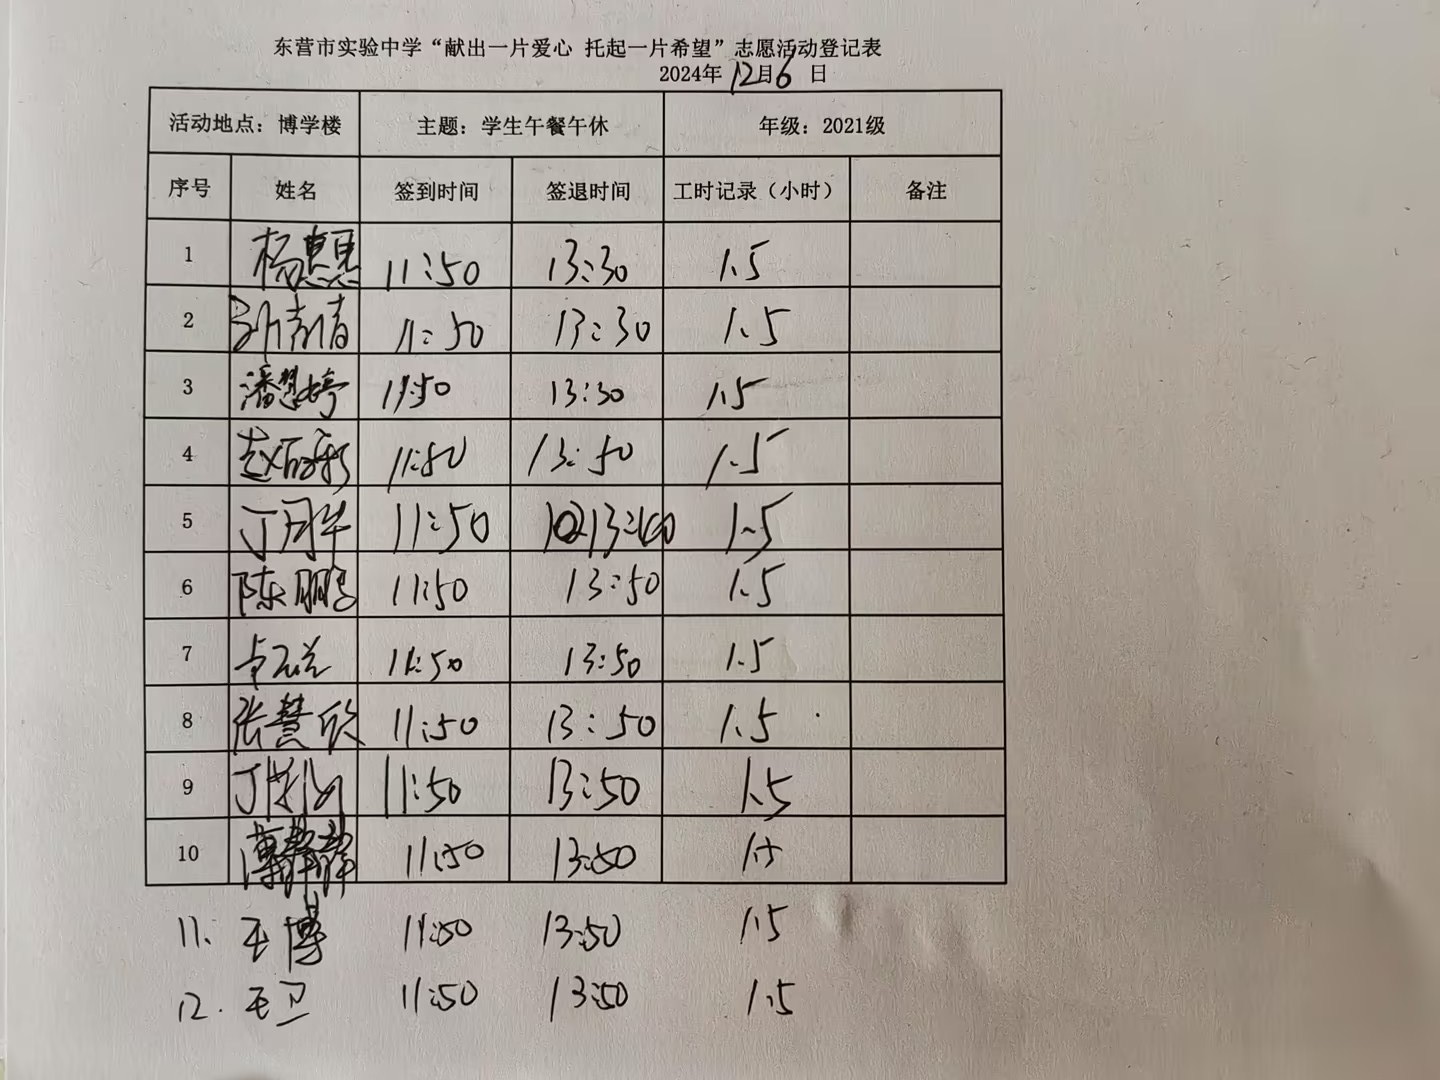 东营市实验中学“献出一片爱心 托起一片希望”志愿活动登记表
2024年12月6日
活动地点：博学楼 主题：学生午餐午休 年级：2021级
序号 姓名 签到时间 签退时间 工时记录（小时） 备注
1 杨惠惠 11:50 13:30 1.5
2 孙倩倩 11:50 13:30 1.5
3 潘慧婷 11:50 13:30 1.5
4 赵 11:50 13:50 1.5
5 丁 11:50 13: 1.5
6 陈鹏 11:50 13:50 1.5
7 11:50 13:50 1.5
8 张慧欣 11:50 13:50 1.5
9 丁 11:50 13:50 1.5
10 薄静静 11:50 13:50 1.5
11. 王博 11:50 13:50 1.5
12. 王卫 11:50 13:50 1.5